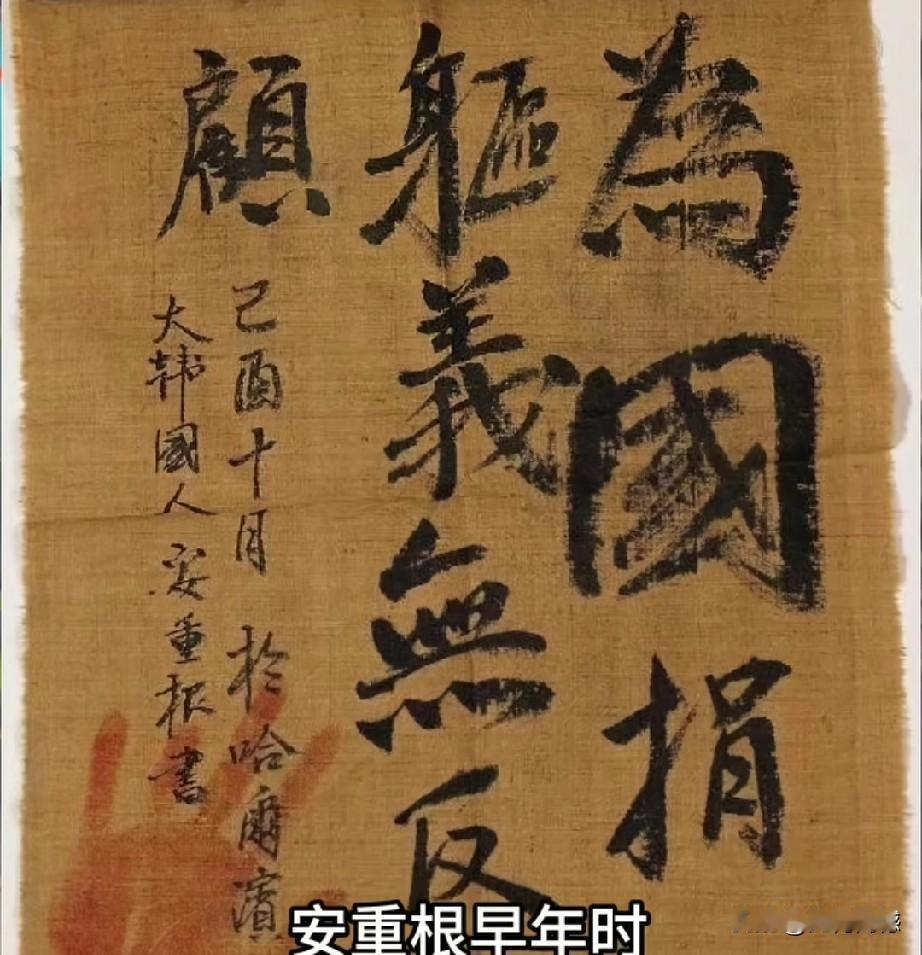 為國捐
軀義無反
顧
己酉十月 於哈爾濱
大韓國人 安重根書
安重根早年时